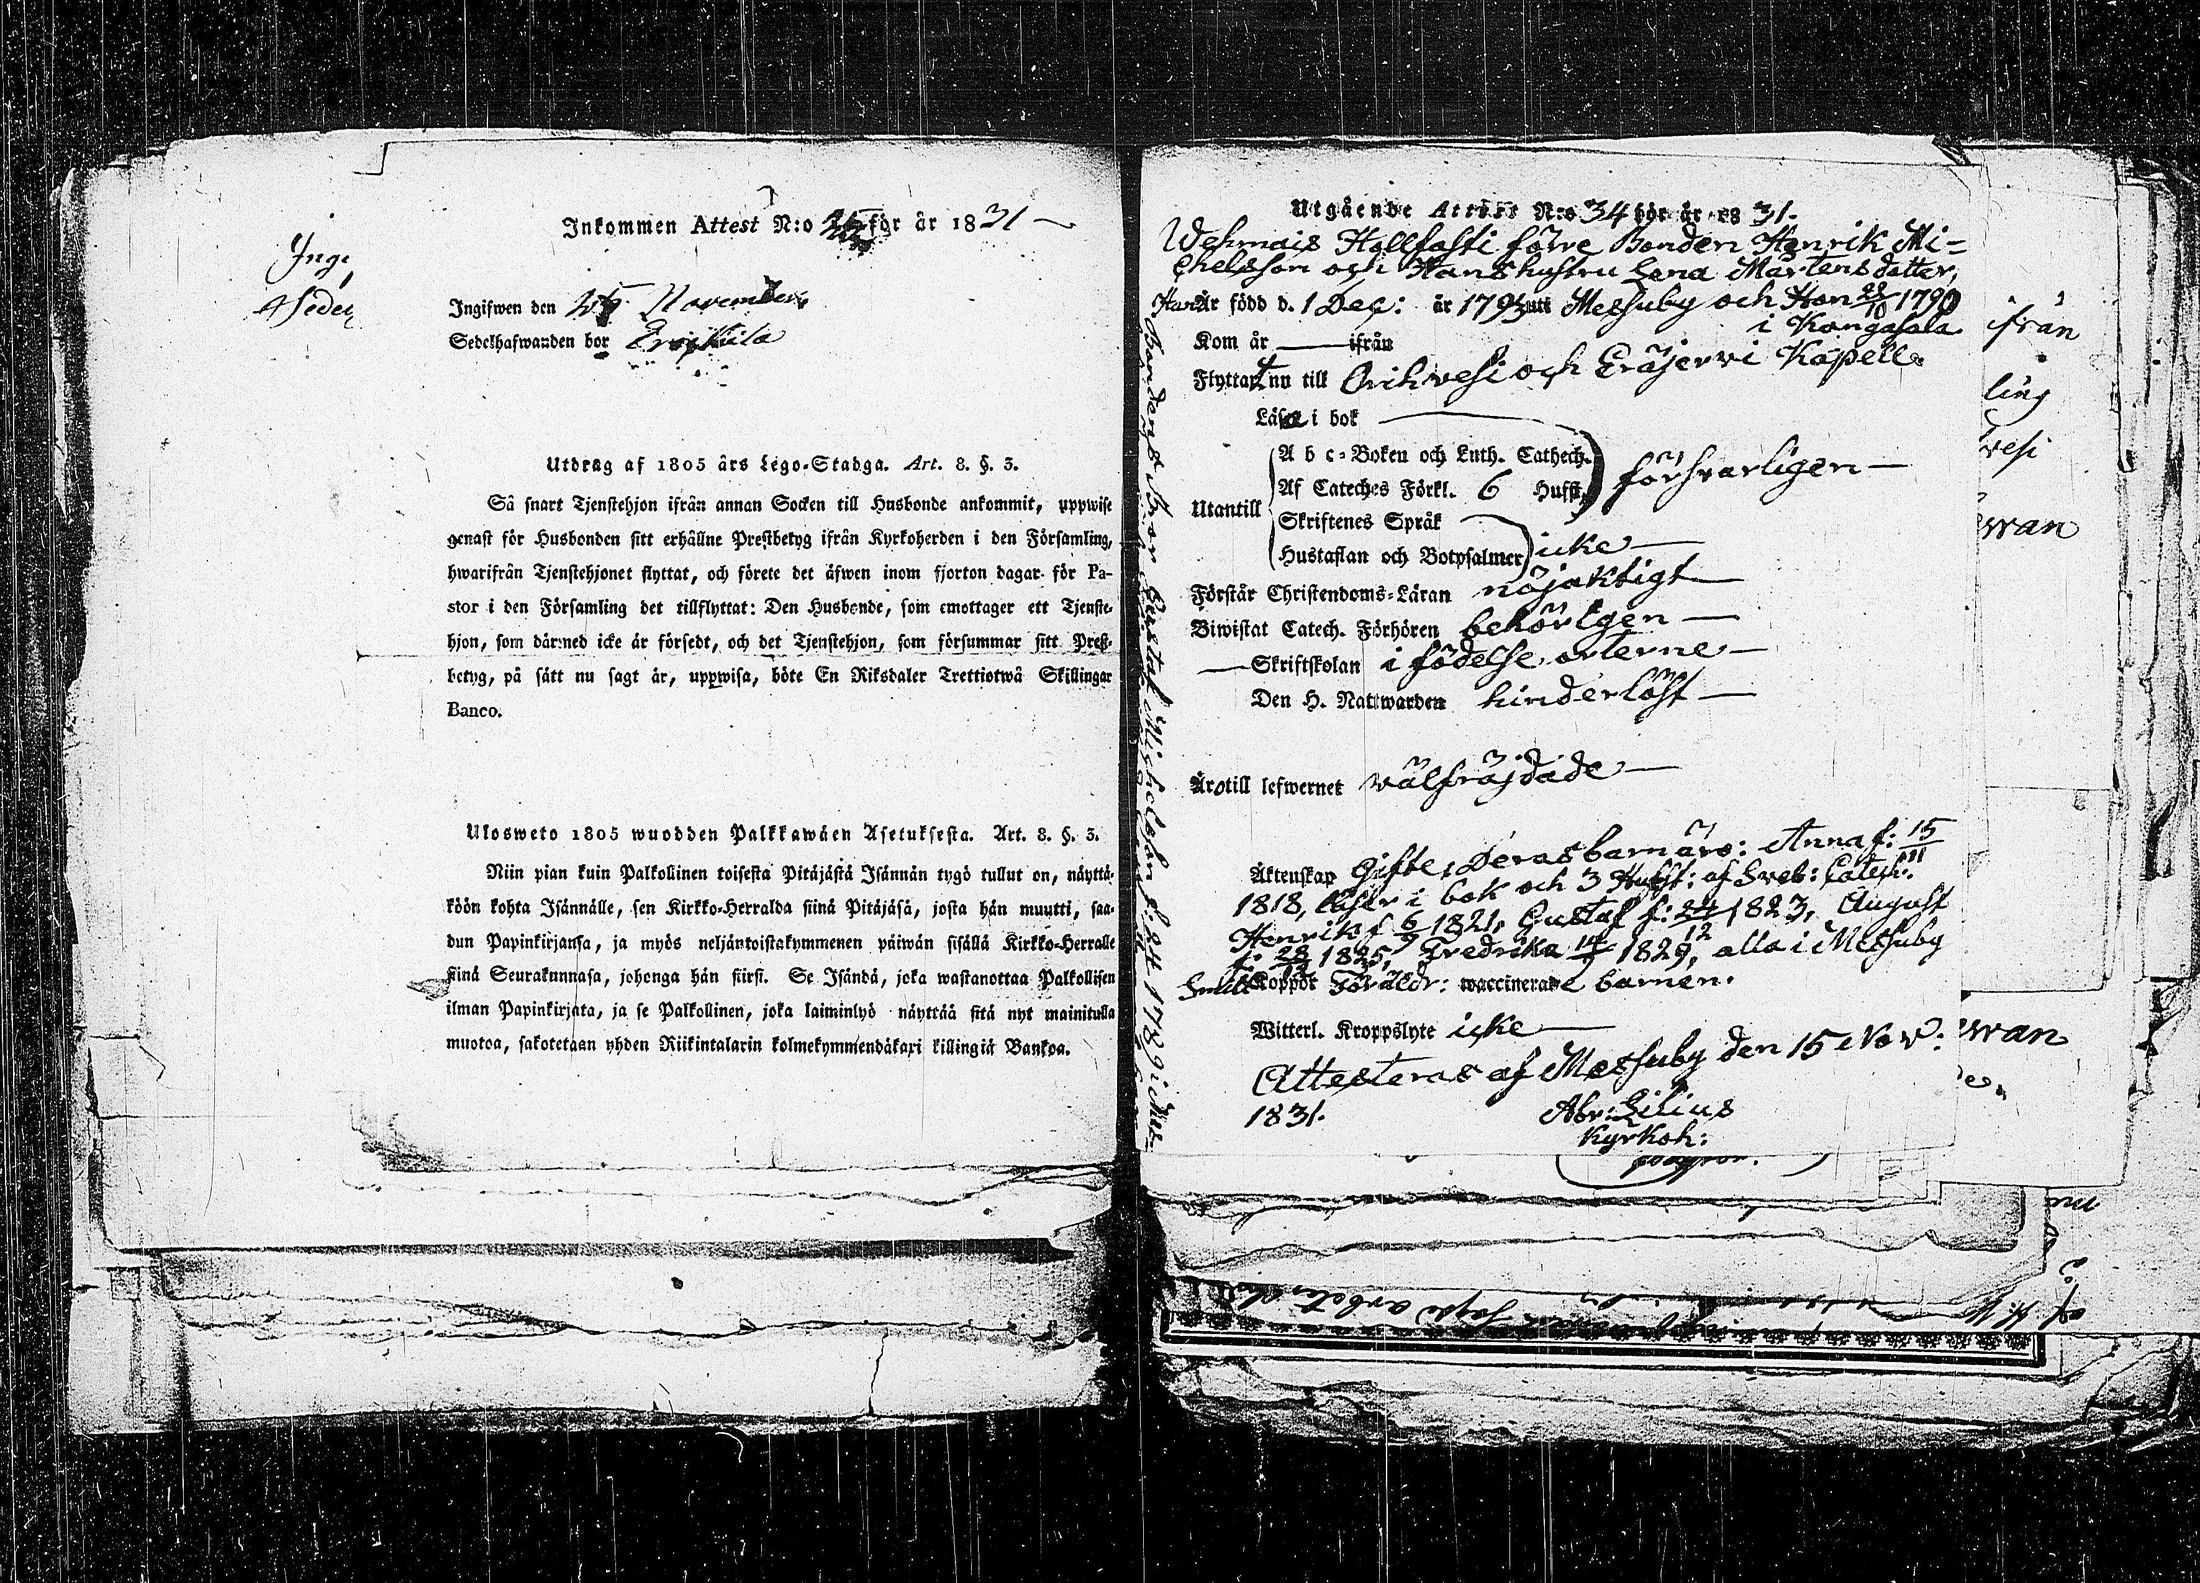 Inkommen Attest N:o för år 1831
Inge
Sedel
Ingifwen den November
Sedelhafwanden bor Eräkkilä
Utdrag af 1805 års Lego-Stadga. Art. 8. §. 3.
Så snart Tjenstehjon ifrån annan Socken till Husbonde ankommit, uppwise
genast för Husbonden sitt erhållne Prestbetyg ifrån Kyrkoherden i den Församling,
hwarifrån Tjenstehjonet flyttat, och förete det äfwen inom fjorton dagar för Pa-
stor i den Församling det tillflyttat: Den Husbonde, som emottager ett Tjenste-
hjon, som därmed icke är försedt, och det Tjenstehjon, som försummar sitt Prest-
betyg, på sätt nu sagt är, uppwisa, böte En Riksdaler Trettiotwå Skillingar
Banco.
Ulosweto 1805 wuodden Palkkawäen Asetuksesta. Art. 8. §. 3.
Niin pian kuin Palkollinen toisesta Pitäjästä Isännän tygö tullut on, näyttä-
köön kohta Isännälle, sen Kirkko-Herralda siinä Pitäjäsä, josta hän muutti, saa-
dun Papinkirjansa, ja myös neljäntoistakymmenen päiwän sisällä Kirkko-Herralle
siinä Seurakunnasa, johonga hän siirsi. Se Isändä, joka wastanottaa Palkollisen
ilman Papinkirjata, ja se Palkollinen, joka laiminlyö näyttää sitä nyt mainitulla
muotoa, sakotetaan yhden Riikintalarin kolmekymmendäkaxi killingiä Bankoa.
Utgående Attest N:o 34 för år 1831.
Wehmais Hallfasti förre Bonden Henrik Mi-
chelsson och Hans hustru Lena Mårtensdatter,
Han Är född d. 1 Dec: år 1793 uti Messuby och Hon 22/10 1790
i Kangasala
Kom år ifrån
Flyttat nu till Orihvesi och Eräjerwi Kapell
Läser i bok
A b c-Boken och Luth. Cathech.
Af Cateches Förkl. 6 Hufst. försvarligen
Utantill
Skriftenes Språk
Hustaflan och Botpsalmer icke
Förstår Christendoms-Läran nöjaktigt
Biwistat Catech. Förhören behörigen
Skriftskolan i födelse orterne
Den H. Nattwarden hinderlöst
Äro till lefwernet wälfräjdade
Äktenskap Gifte, Deras barn äro: Anna f: 15/11
1818, läser i bok och 3 Hufst: af Sveb: Catech:
Henrik f 6/9 1821, Gustaf f: 24/12 1823, August
f: 28/12 1825, Fredrika 1829, alla i Messuby
Smitt Koppor Föräldr: waccinerade barnen.
Witterl. Kroppslyte icke
Attesteras af Messuby den 15 Nov:
1831. Abr: Lilius
Kyrkoh:
Bondens Bror Gustaf Michelsson f: 1789 i Mess-
ifrån
ling
vesi
wan
wan
nu